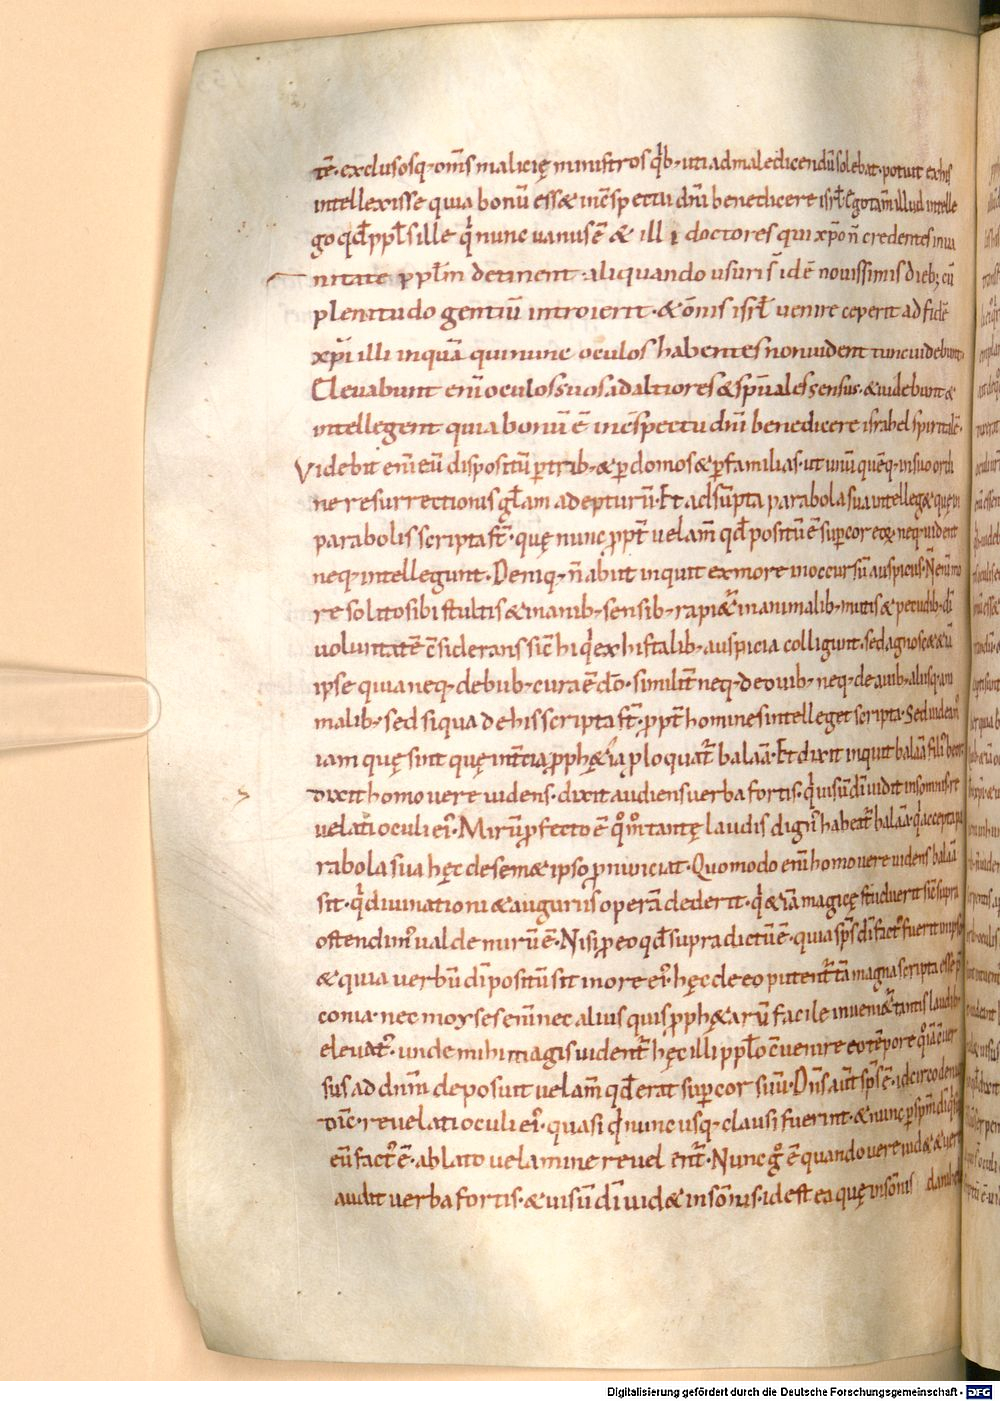 tē. exclusosq; om̄s malicię ministros qb; uti ad maledicendū solebat. potuit ex his
intellexisse quia bonū ess& in c̄spectu dn̄i benedicere isrl̄. Ego tam̄ illud intelle
go qd̄ ppl̄s ille qi nunc uanus ē & illi doctores qui xp̄o n̄ credentes in ua
nitate ppl̄m detinent. aliquando usuri s̄ idē nouissimis dieb; cū
plenitudo gentiū introierit. & om̄is isrl̄ uenire ceperit ad fidē
xp̄i illi inquā qui nunc oculos habentes non uident tunc uidebunt.
Eleuabunt enī oculos suos ad altiores & sp̄uales sensus. & uidebunt &
intellegent quia bonū ē in c̄spectu dn̄i benedicere israhel spiritalē.
Videbit enī eū dispositū p trib; & p domos & p familias. ut unū quēq; in suo ordi
ne resurrectionis gl̄am adepturū. Et adsūpta parabola sua intelleg& quę in
parabolis scripta st̄. quę nunc ppt̄ uelam̄ qd̄ positū ē sup cor eoꝝ neq; uident
neq; intellegunt. Deniq; n̄ abiit inquit ex more in occursū auspiciis. N̄ enī mo
re solito sibi stultis & inanib; sensib; rapi&ur in animalib; mutis & pecudib; dī
uoluntatē c̄siderans sic̄ hi qi ex his talib; auspicia colligunt. sed agnosc& &iā
ipse quia neq; de bub; cura ē dō. similit̄ neq; de ouib; neq; de auib; aliisq; ani
malib; sed si qua de his scripta st̄. ppt̄ homines intelleget scripta. Sed uideam;
iam quę sint quę int̄cia pph&ia ploquat̄ balaā. Et dixit inquit balaā fili; beor
dixit homo uere uidens. dixit audiens uerba fortis. qi uisū dī uidit in somnis. re
uelati oculi ei;. Mirū pfecto ē qōm tantę laudis dign; habeat̄ balaā. qi accepta pa
rabola sua hęc de sem& ipso pnunciat. Quomodo enī homo uere uidens balaā
sit. qi diuinationi & auguriis operā dederit. qi &iā magicę studuerit sic̄ supra
ostendim; ualde mirū ē. Nisi p eo qd̄ supra dictū ē. quia sp̄s dī fact; fuerit in ipso
& quia uerbū dī positū sit in ore ei;. hęc de eo putent̄ tā magna scripta esse p̄
conia. nec moyses enī nec alius quis pph&arū facile inueni&ur tantis laudib;
eleuat;. unde mihi magis uident̄ hęc illi ppl̄o c̄uenire eo tēpore q̄ iā c̄uer
sus ad dn̄m deposuit uelam̄ qd̄ erat sup cor suū. Dn̄s aut̄ sp̄s ē. idcirco denu
dic̄. reuelati oculi ei;. quasi qi nunc usq; clausi fuerint. & nunc p sp̄m dī qi su
eū fact; ē. ablato uelamine reuelent̄. Nunc g̊ ē quando uere uid& & uere
audit uerba fortis. & uisū dī uid& in sōnis. id est ea quę in sōnis
Digitalisierung gefördert durch die Deutsche Forschungsgemeinschaft - DFG